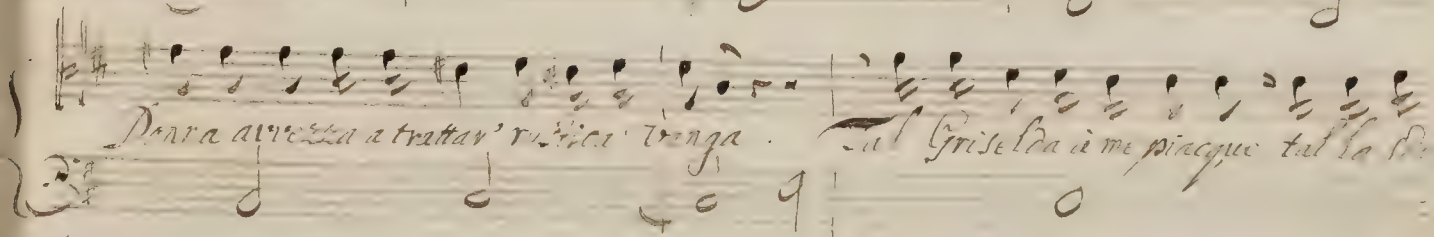 Donna avvezza a trattar' rustica vanga. Tal Griselda à me piacque tal la